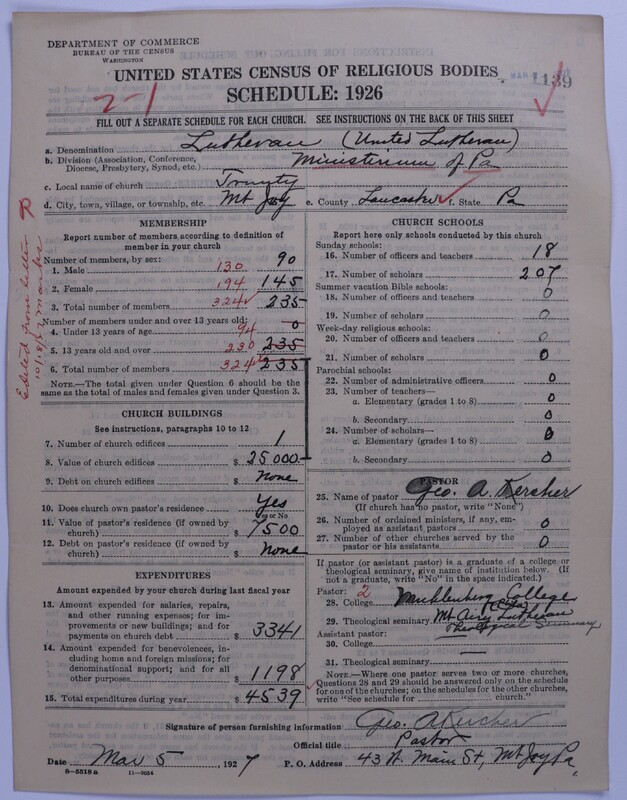 DEPARTMENT OF COMMERCE
BUREAU OF THE CENSUS
WASHINGTON
UNITED STATES CENSUS OF RELIGIOUS BODIES
SCHEDULE: 1926
2-1
1139
FILL OUT A SEPARATE SCHEDULE FOR EACH CHURCH. SEE INSTRUCTIONS ON THE BACK OF THIS SHEET
a. Denomination Lutheran (United Lutheran)
b. Division (Association, Conference, Diocese, Presbytery, Synod, etc.) Ministerium of Pa
c. Local name of church Trinity
d. City, town, village, or township, etc. Mt Joy e. County Lancaster f. State Pa
MEMBERSHIP
Report number of members according to definition of member in your church
Number of members, by sex:
1. Male 130 90
2. Female 194 145
3. Total number of members 324 235
Number of members under and over 13 years old:
4. Under 13 years of age 94 0
5. 13 years old and over 230 235
6. Total number of members 324 235
NOTE.—The total given under Question 6 should be the same as the total of males and females given under Question 3.
CHURCH BUILDINGS
See instructions, paragraphs 10 to 12
7. Number of church edifices 1
8. Value of church edifices $ 25000
9. Debt on church edifices $ None
10. Does church own pastor's residence? Yes
Yes or No
11. Value of pastor's residence (if owned by church) $ 7500
12. Debt on pastor's residence (if owned by church) $ None
EXPENDITURES
Amount expended by your church during last fiscal year
13. Amount expended for salaries, repairs, and other running expenses; for improvements or new buildings; and for payments on church debt $ 3341
14. Amount expended for benevolences, including home and foreign missions; for denominational support; and for all other purposes $ 1198
15. Total expenditures during year $ 4539
CHURCH SCHOOLS
Report here only schools conducted by this church
Sunday schools:
16. Number of officers and teachers 18
17. Number of scholars 207
Summer vacation Bible schools:
18. Number of officers and teachers 0
19. Number of scholars 0
Week-day religious schools:
20. Number of officers and teachers 0
21. Number of scholars 0
Parochial schools:
22. Number of administrative officers 0
23. Number of teachers—
a. Elementary (grades 1 to 8) 0
b. Secondary 0
24. Number of scholars—
a. Elementary (grades 1 to 8) 0
b. Secondary 0
PASTOR
25. Name of pastor Geo. A. Kercher
(If church has no pastor, write "None")
26. Number of ordained ministers, if any, employed as assistant pastors 0
27. Number of other churches served by the pastor or his assistants 0
If pastor (or assistant pastor) is a graduate of a college or theological seminary, give name of institution below. (If not a graduate, write "No" in the space indicated.)
Pastor: 2
28. College Muhlenberg College
29. Theological seminary Mt Airy Lutheran
Theological Seminary
Assistant pastor:
30. College
31. Theological seminary
NOTE.—Where one pastor serves two or more churches, Questions 28 and 29 should be answered only on the schedule for one of the churches; on the schedules for the other churches, write "See schedule for church."
Signature of person furnishing information Geo. A Kercher
Official title Pastor
Date Mar 5, 1927 P. O. Address 43 W. Main St, Mt Joy Pa.
8-5518a 11-9034